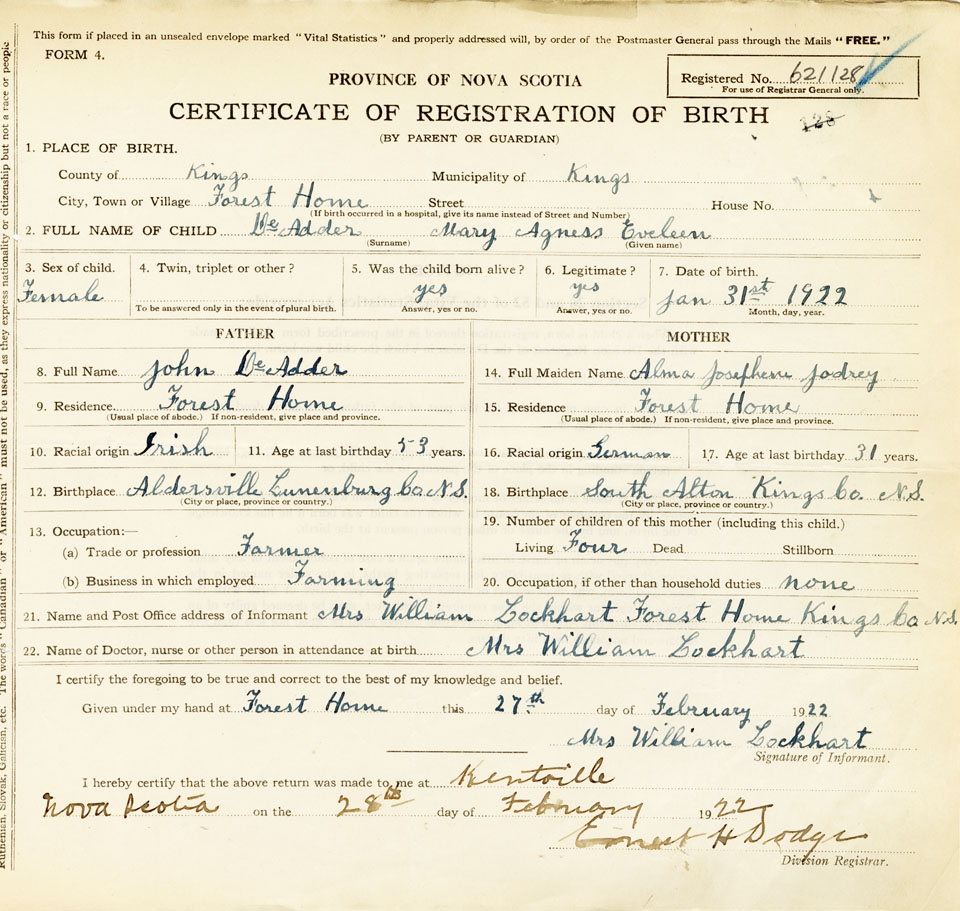 This form if placed in an unsealed envelope marked "Vital Statistics" and properly addressed will, by order of the Postmaster General pass through the Mails "FREE."
FORM 4.
PROVINCE OF NOVA SCOTIA
Registered No. 621128
For use of Registrar General only.
CERTIFICATE OF REGISTRATION OF BIRTH
128
(BY PARENT OR GUARDIAN)
1. PLACE OF BIRTH.
County of Kings Municipality of Kings
City, Town or Village Forest Home Street House No.
(If birth occurred in a hospital, give its name instead of Street and Number)
2. FULL NAME OF CHILD DeAdder Mary Agness Eveleen
(Surname) (Given name)
3. Sex of child. 4. Twin, triplet or other? 5. Was the child born alive? 6. Legitimate? 7. Date of birth.
Female yes yes Jan 31st 1922
To be answered only in the event of plural birth. Answer, yes or no. Answer, yes or no. Month, day, year.
FATHER MOTHER
8. Full Name John DeAdder 14. Full Maiden Name Alma Josephene Jodrey
9. Residence Forest Home 15. Residence Forest Home
(Usual place of abode.) If non-resident, give place and province. (Usual place of abode.) If non-resident, give place and province.
10. Racial origin Irish 11. Age at last birthday 53 years. 16. Racial origin German 17. Age at last birthday 31 years.
12. Birthplace Aldersville Lunenburg Co N.S. 18. Birthplace South Alton Kings Co. N.S.
(City or place, province or country.) (City or place, province or country.)
13. Occupation:— 19. Number of children of this mother (including this child.)
(a) Trade or profession Farmer Living Four Dead Stillborn
(b) Business in which employed Farming 20. Occupation, if other than household duties none
21. Name and Post Office address of Informant Mrs William Lockhart Forest Home Kings Co N.S.
22. Name of Doctor, nurse or other person in attendance at birth Mrs William Lockhart
I certify the foregoing to be true and correct to the best of my knowledge and belief.
Given under my hand at Forest Home this 27th day of February 1922
Mrs William Lockhart
Signature of Informant.
I hereby certify that the above return was made to me at Kentville
Nova Scotia on the 28th day of February 1922
Ernest H Dodge
Division Registrar.
The words "Canadian" or "American" must not be used, as they express nationality or citizenship but not a race or people
Ruthenian, Slovak, Galician, etc.